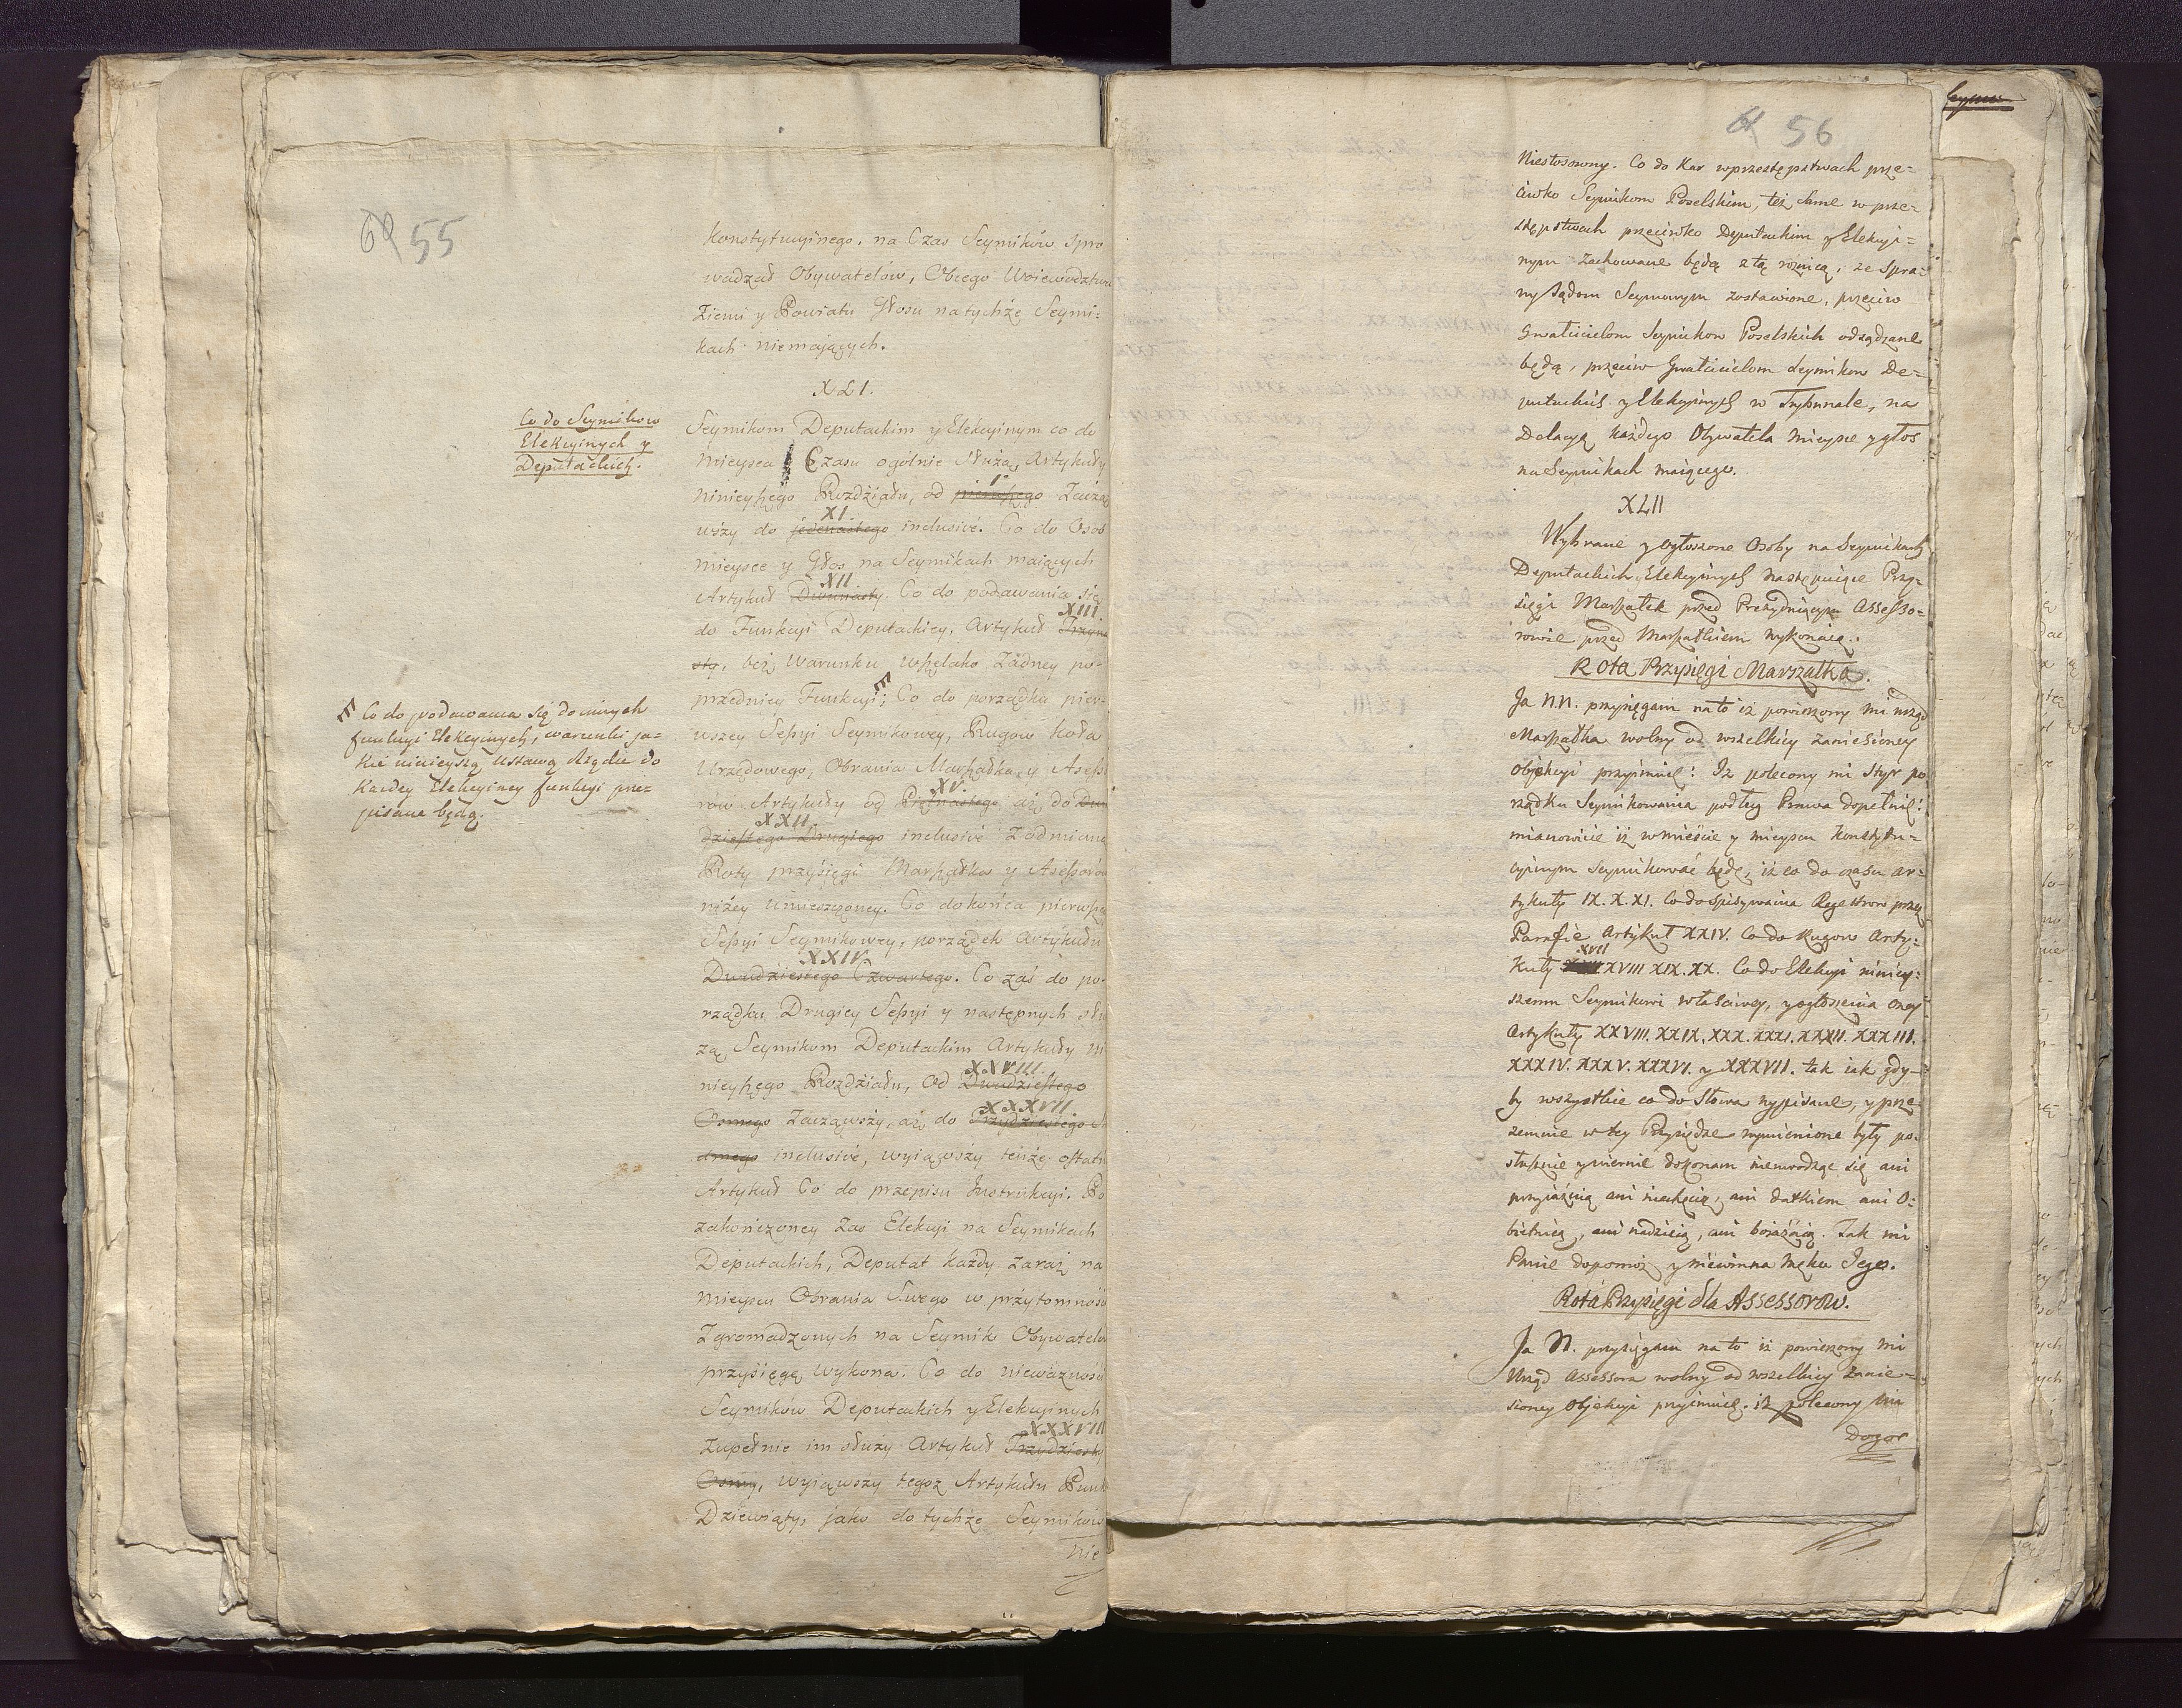 55
Konstytucyinego, na Czas Seymików spro
wadzał Obywatelów, Obcego Woiewodztwa
Ziemi y Powiatu Głosu na tychże Seymi=
kach niemających.
XLI.
Co do Seymikow
Elekcyinych y
Deputackich.
Seymikom Deputackim y Elekcyinym co do
Mieysca Czasu ogólnie służą Artykuły
Ninieyszego Rozdziału, od pierwszego I. Zaczą
wszy do jedenastego XI inclusivè. Co do Osob
Mieysce y Głos na Seymikach maiących
Artykuł Dwunasty XII. Co do podawania się
do Funkcyi Deputackiey, Artykuł Trzyna XIII
sty, bez Warunku wszelako Żadney po-
przedniey Funkcyi; Co do porządku pier-
wszey Sessyi Seymikowey, Rugow Koła
Urzędowego, Obrania Marszałka y Assesso
rów Artykuły od Piętnastego XV. aż do Dwu
dziestego Drugiego XXII. inclusivè Z odmianą
Roty przysięgi Marszałka y Assessorów
niżey umieszczoney. Co do końca pierwszey
Sessyi Seymikowey, porządek Artykułu
Dwudziestego Czwartego XXIV. Co zaś do po-
rządku Drugiey Sessyi y następnych słu
żą Seymikom Deputackim Artykuły ni
nieyszego Rozdziału, od Dwudziestego XXVIII.
Osmego Zacząwszy, aż do Trzydziestego Si XXXVII
dmego inclusivè, wyiąwszy tenże ostatni
Artykuł Co do przepisu Instrukcyi. Po
zakończoney zas Elekcyi na Seymikach
Deputackich, Deputat każdy zaraz na
Mieyscu Obrania Swego w przytomności
Zgromadzonych na Seymik Obywatelow
przysięgę wykona. Co do nieważności
Seymików Deputackich y Elekcyinych
Zupełnie im służy Artykuł Trzydziesty XXXVIII
Osmy, wyiąwszy tegoz Artykułu Punkt
Dziewiąty, jako do tychże Seymików
Nie
Co do podawania się do innych
funkcyi Elekcyinych, warunki ja-
kie ninieyszą Ustawą Rządu do
Kazdey Elekcyiney funkcyi prze-
pisane będą.
56
Niestosowny. Co do Kar w przestępstwach prze-
ciwko Seymikom Poselskim, też same w prze-
stępstwach przeciwko Deputackim y Elekcyi=
nym Zachowane będą z tą roznicą, ze Spra-
wy Sądom Seymowym zostawione, przeciw
Gwałcicielom Seymikow Poselskich odsądzane
będą, przeciw Gwałcicielom Seymikow De-
putackich y Elekcyinych w Trybunale, na
Delacyą każdego Obywatela mieysce y głos
na Seymikach maiącego.
XLII
Wybrane y ogłoszone Osoby na Seymikach
Deputackich, Elekcyinych następuiące Przy-
sięgi Marszałek przed Prezyduiącym Assesso-
rowie przed Marszałkiem wykonaią.
Rota Przysięgi Marszałka.
Ja N.N. przysięgam na to iż powierzony mi urząd
Marszałka wolny od wszelkiey zaniesioney
Objekcyi przyimuię: Iz polecony mi Styr po
rządku Seymikowania podług Prawa dopełnię:
mianowicie iż w mieście y mieyscu Konstytu-
cyinym Seymikować będę, iż co do czasu ar-
tykuły IX. X. XI. Co do spisywania Regestrow przez
Parafie Artykuł XXIV. Co do Rugow Arty-
kuły XVII XVIII XIX. XX. Co do Elekcyi niniey-
szemu Seymikowi właściwey, y ogłoszenia oney
Artykuły XXVIII. XXIX. XXX. XXXI. XXXII. XXXIII.
XXXIV. XXXV. XXXVI. y XXXVII. tak iak gdy-
by wszystkie co do Słowa wypisane, y prze
zemnie w tey Przysiędze wymienione były po-
słusznie y wiernie dokonam nieuwodząc się ani
przyiaźnią ani niechęcią, ani datkiem ani O-
bietnicą, ani nadzieią, ani boiaźnią. Tak mi
Panie dopomóż y niewinna męka Jego.
Rota Przysięgi dla Assessorow.
Ja N. przysięgam na to iż powierzony mi
Urząd Assessora wolny od wszelkiey zanie-
sioney Objekcyi przyimuię. iż polecony mi
Dozor